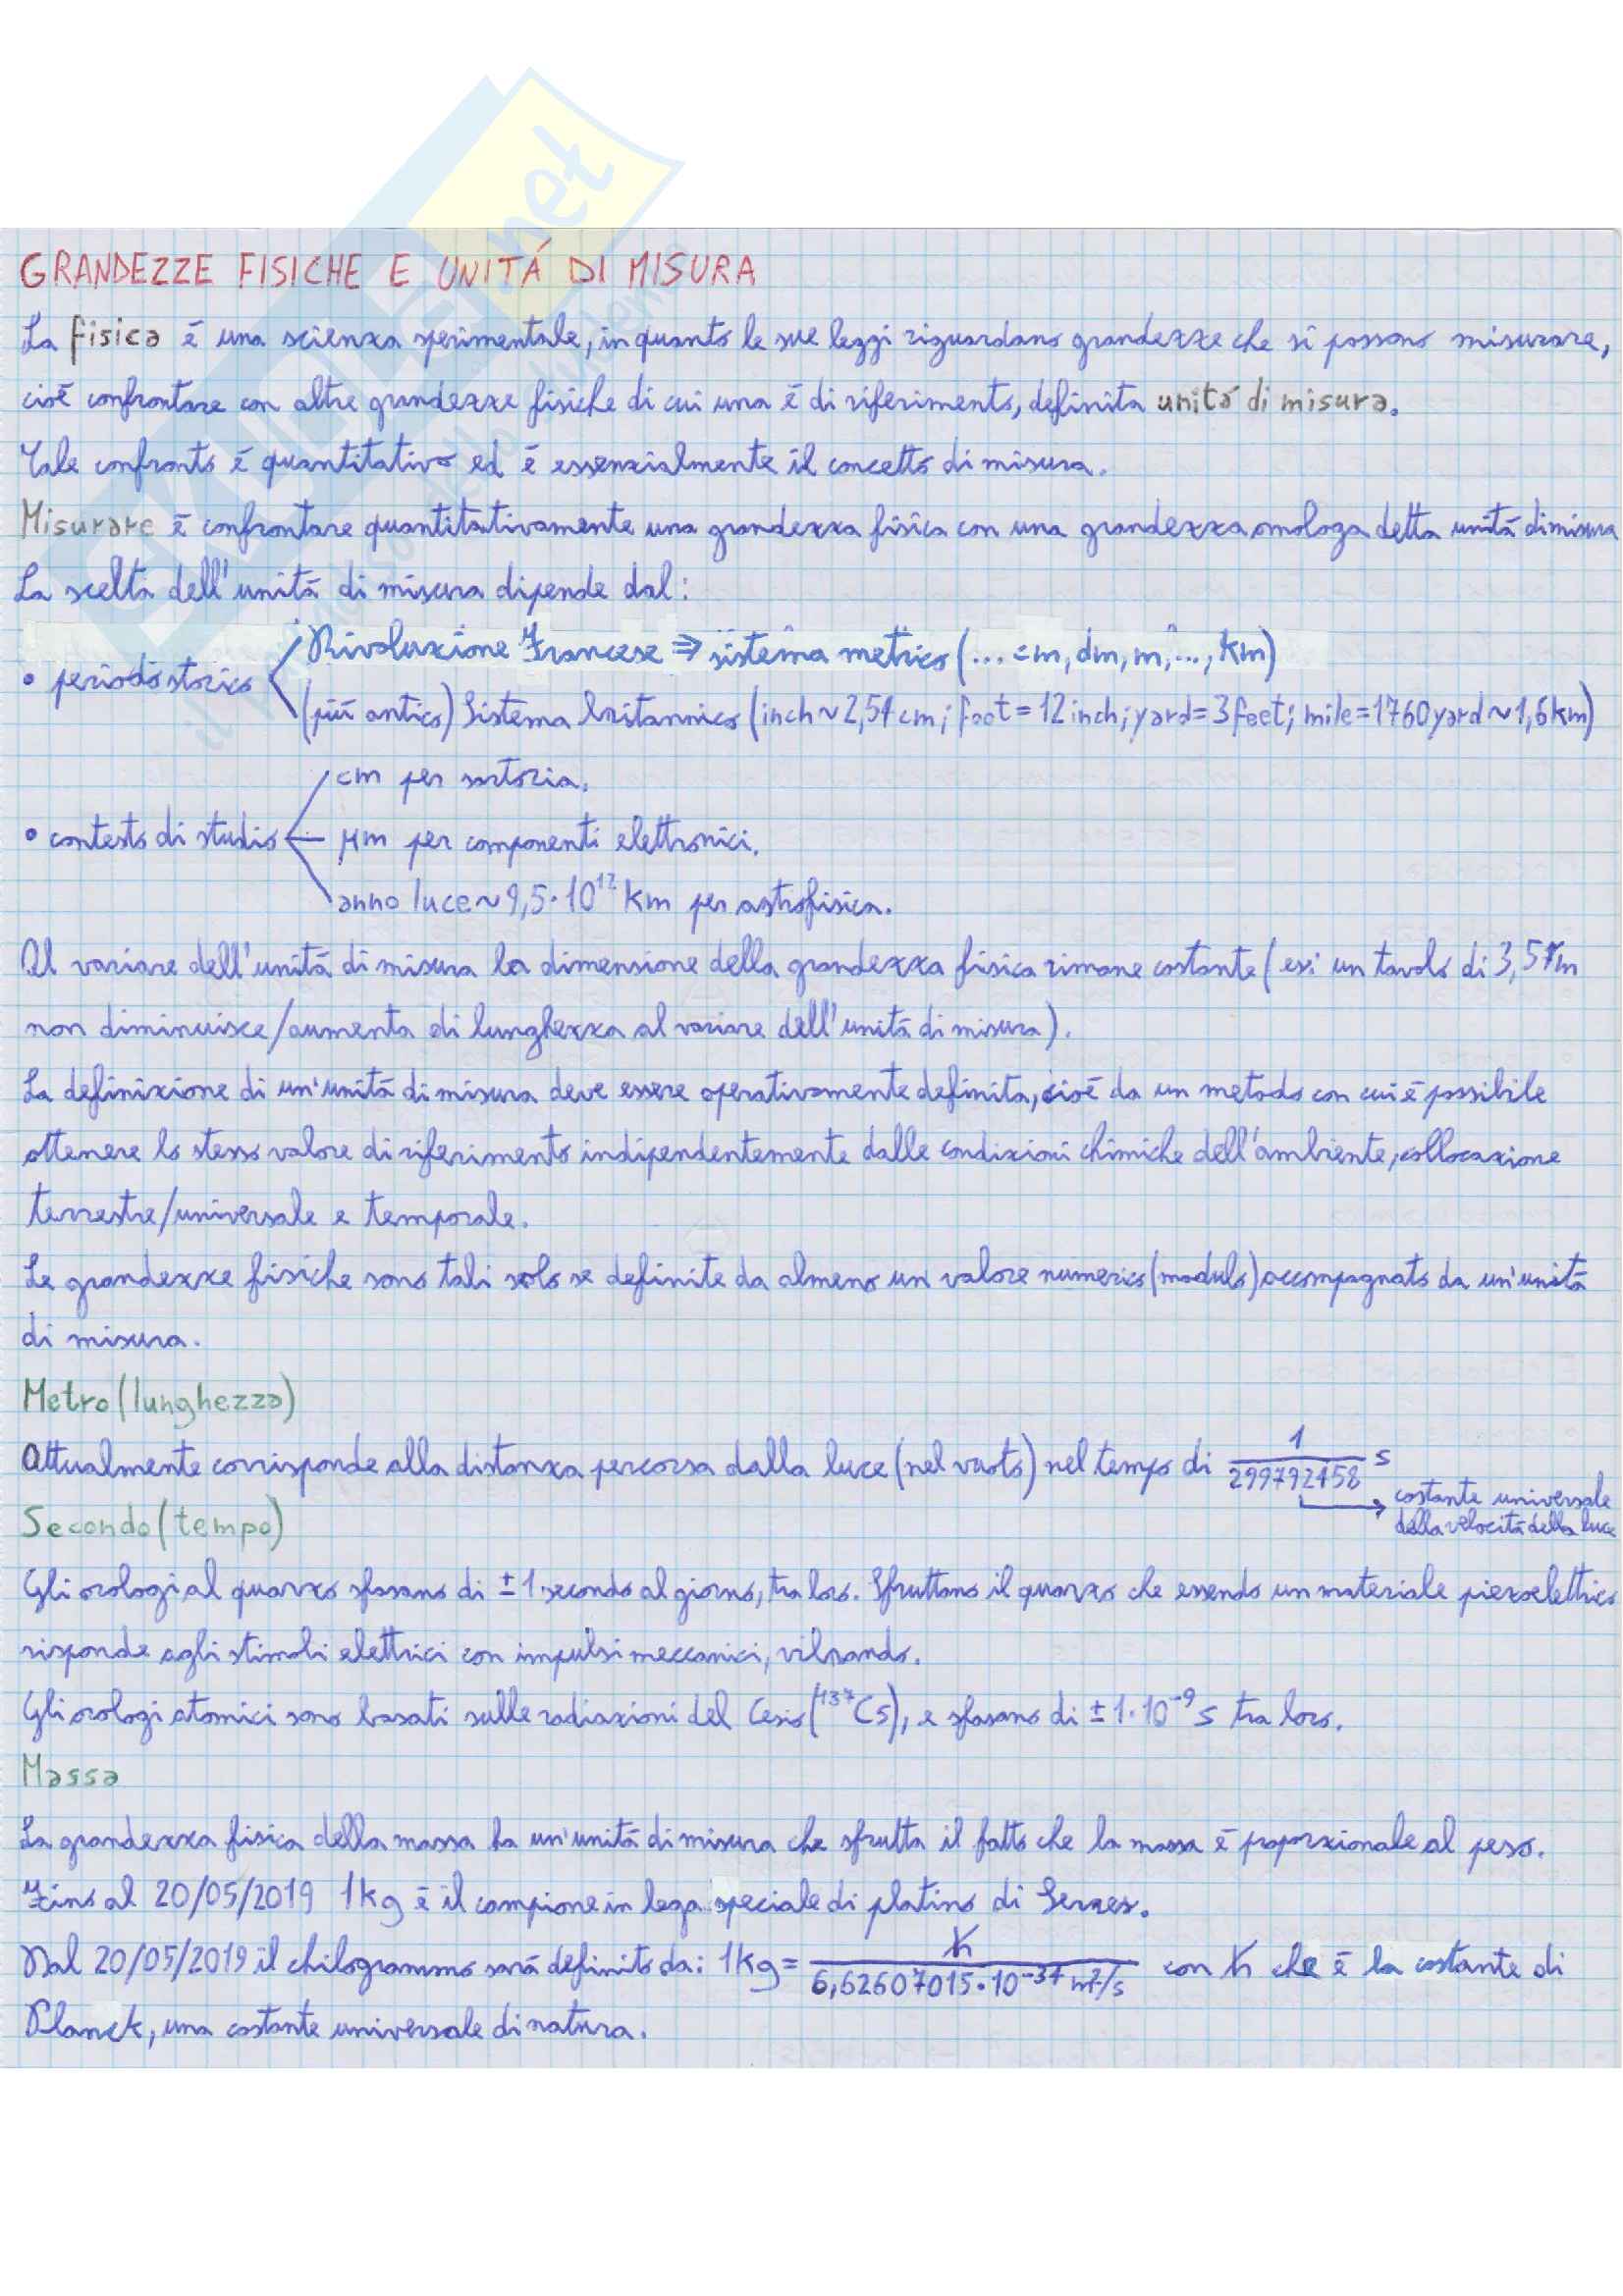 GRANDEZZE FISICHE E UNITÁ DI MISURA
La fisica é una scienza sperimentale, in quanto le sue leggi riguardano grandezze che si possono misurare,
cioé confrontare con altre grandezze fisiche di cui una é di riferimento, definita unitá di misura.
Tale confronto é quantitativo ed é essenzialmente il concetto di misura.
Misurare é confrontare quantitativamente una grandezza fisica con una grandezza omologa detta unitá di misura
La scelta dell'unitá di misura dipende dal:
Rivoluzione Francese ⇒ sistema metrico (... cm, dm, m, ..., km)
• periodo storico
(piú antico) Sistema britannico (inch ~ 2,54 cm; foot = 12 inch; yard = 3 feet; mile = 1760 yard ~ 1,6 km)
cm per sartoria.
• contesto di studio — μm per componenti elettronici.
anno luce ~ 9,5·10¹² km per astrofisica.
Al variare dell'unitá di misura la dimensione della grandezza fisica rimane costante (es: un tavolo di 3,57m
non diminuisce/aumenta di lunghezza al variare dell'unitá di misura).
La definizione di un'unitá di misura deve essere operativamente definita, cioé da un metodo con cui é possibile
ottenere lo stesso valore di riferimento indipendentemente dalle condizioni chimiche dell'ambiente, collocazione
terrestre/universale e temporale.
Le grandezze fisiche sono tali solo se definite da almeno un valore numerico (modulo) accompagnato da un'unitá
di misura.
Metro (lunghezza)
Attualmente corrisponde alla distanza percorsa dalla luce (nel vuoto) nel tempo di 1/299792458 s
costante universale
della velocitá della luce
Secondo (tempo)
Gli orologi al quarzo sfasano di ± 1 secondo al giorno, tra loro. Sfruttano il quarzo che essendo un materiale piezoelettrico
risponde agli stimoli elettrici con impulsi meccanici, vibrando.
Gli orologi atomici sono basati sulle radiazioni del Cesio (¹³⁷Cs), e sfasano di ± 1·10⁻⁹ s tra loro.
Massa
La grandezza fisica della massa ha un'unitá di misura che sfrutta il fatto che la massa é proporzionale al peso.
Fino al 20/05/2019 1 kg é il campione in lega speciale di platino di Sevres.
Dal 20/05/2019 il chilogrammo sará definito da: 1 kg = ℏ/6,62607015·10⁻³⁴ m²/s con ℏ che é la costante di
Planck, una costante universale di natura.